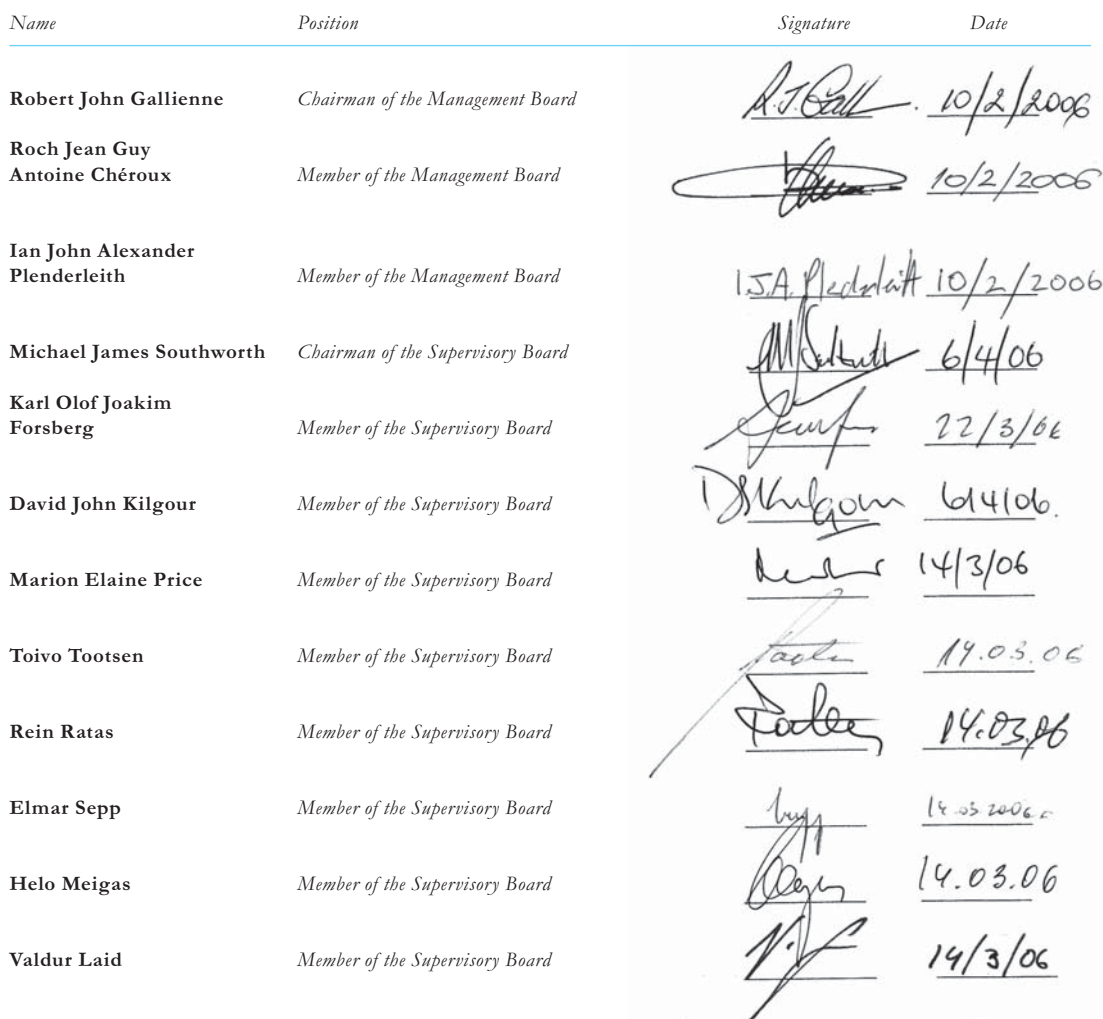 Name Position Signature Date
Robert John Gallienne Chairman of the Management Board R.J. Gall 10/2/2006
Roch Jean Guy
Antoine Chéroux Member of the Management Board 10/2/2006
Ian John Alexander
Plenderleith Member of the Management Board I.J.A. Plenderleith 10/2/2006
Michael James Southworth Chairman of the Supervisory Board 6/4/06
Karl Olof Joakim
Forsberg Member of the Supervisory Board 22/3/06
David John Kilgour Member of the Supervisory Board DJKilgour 6/4/06.
Marion Elaine Price Member of the Supervisory Board 14/3/06
Toivo Tootsen Member of the Supervisory Board 14.03.06
Rein Ratas Member of the Supervisory Board 14.03.06
Elmar Sepp Member of the Supervisory Board 14.03.2006
Helo Meigas Member of the Supervisory Board 14.03.06
Valdur Laid Member of the Supervisory Board 14/3/06